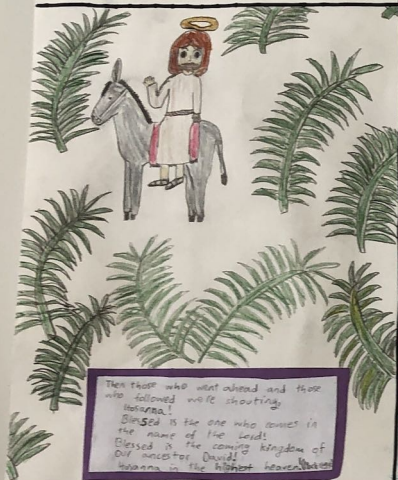 Then those who went ahead and those
who followed were shouting,
Hosanna!
Blessed is the one who comes in
the name of the Lord!
Blessed is the coming kingdom of
our ancestor David!
Hosanna in the highest heaven!